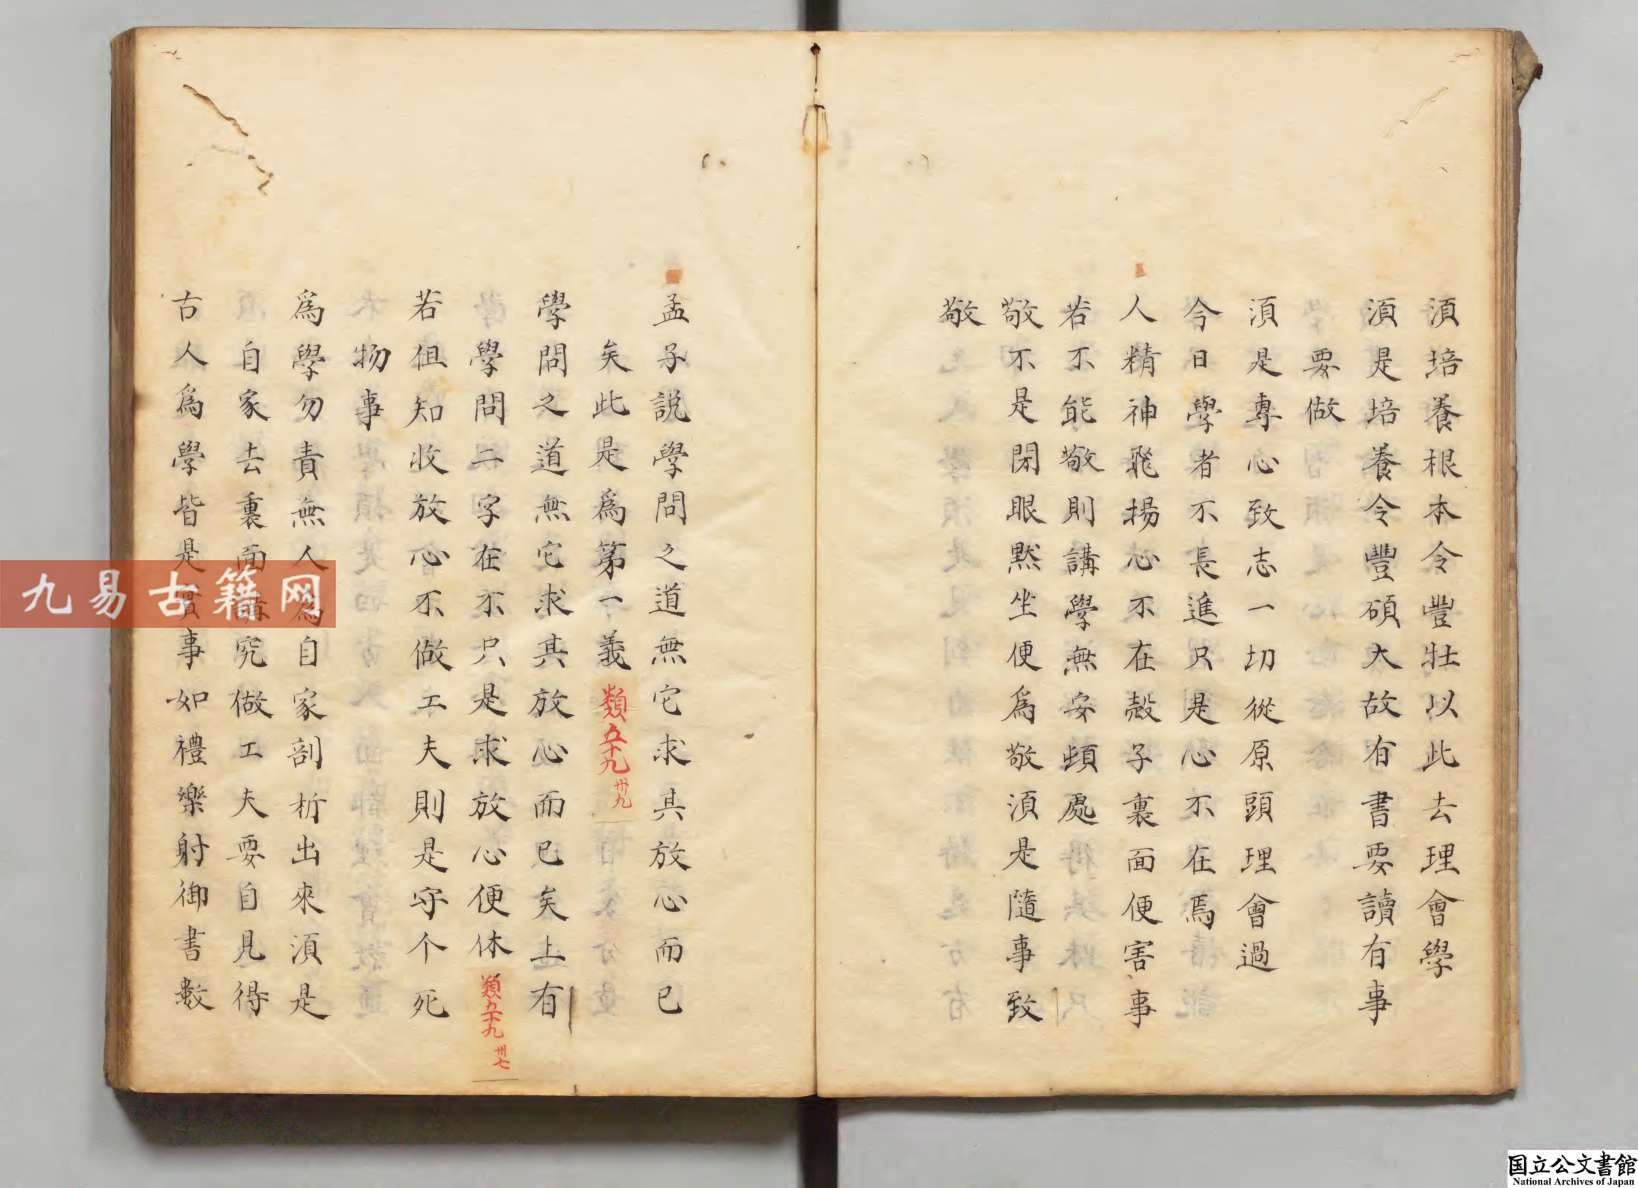 須培養根本令豐壯以此去理會學
須是培養令豐碩大故有書要讀有事
要做
須是專心致志一切從原頭理會過
今日學者不長進只是心不在焉
人精神飛揚心不在殼子裏面便害事
若不能敬則講學無安頓處
敬不是閉眼默坐便為敬須是隨事致
敬
孟子說學問之道無它求其放心而已
矣此是為第一義 類五十九 卅九
學問之道無它求其放心而已矣上有
學問二字在不只是求放心便休 類五十九 卅七
若但知收放心不做工夫則是守个死
物事
為學勿責無人為自家剖析出來須是
自家去裏面講究做工夫要自見得
古人為學皆是實事如禮樂射御書數
九易古籍网
国立公文書館
National Archives of Japan